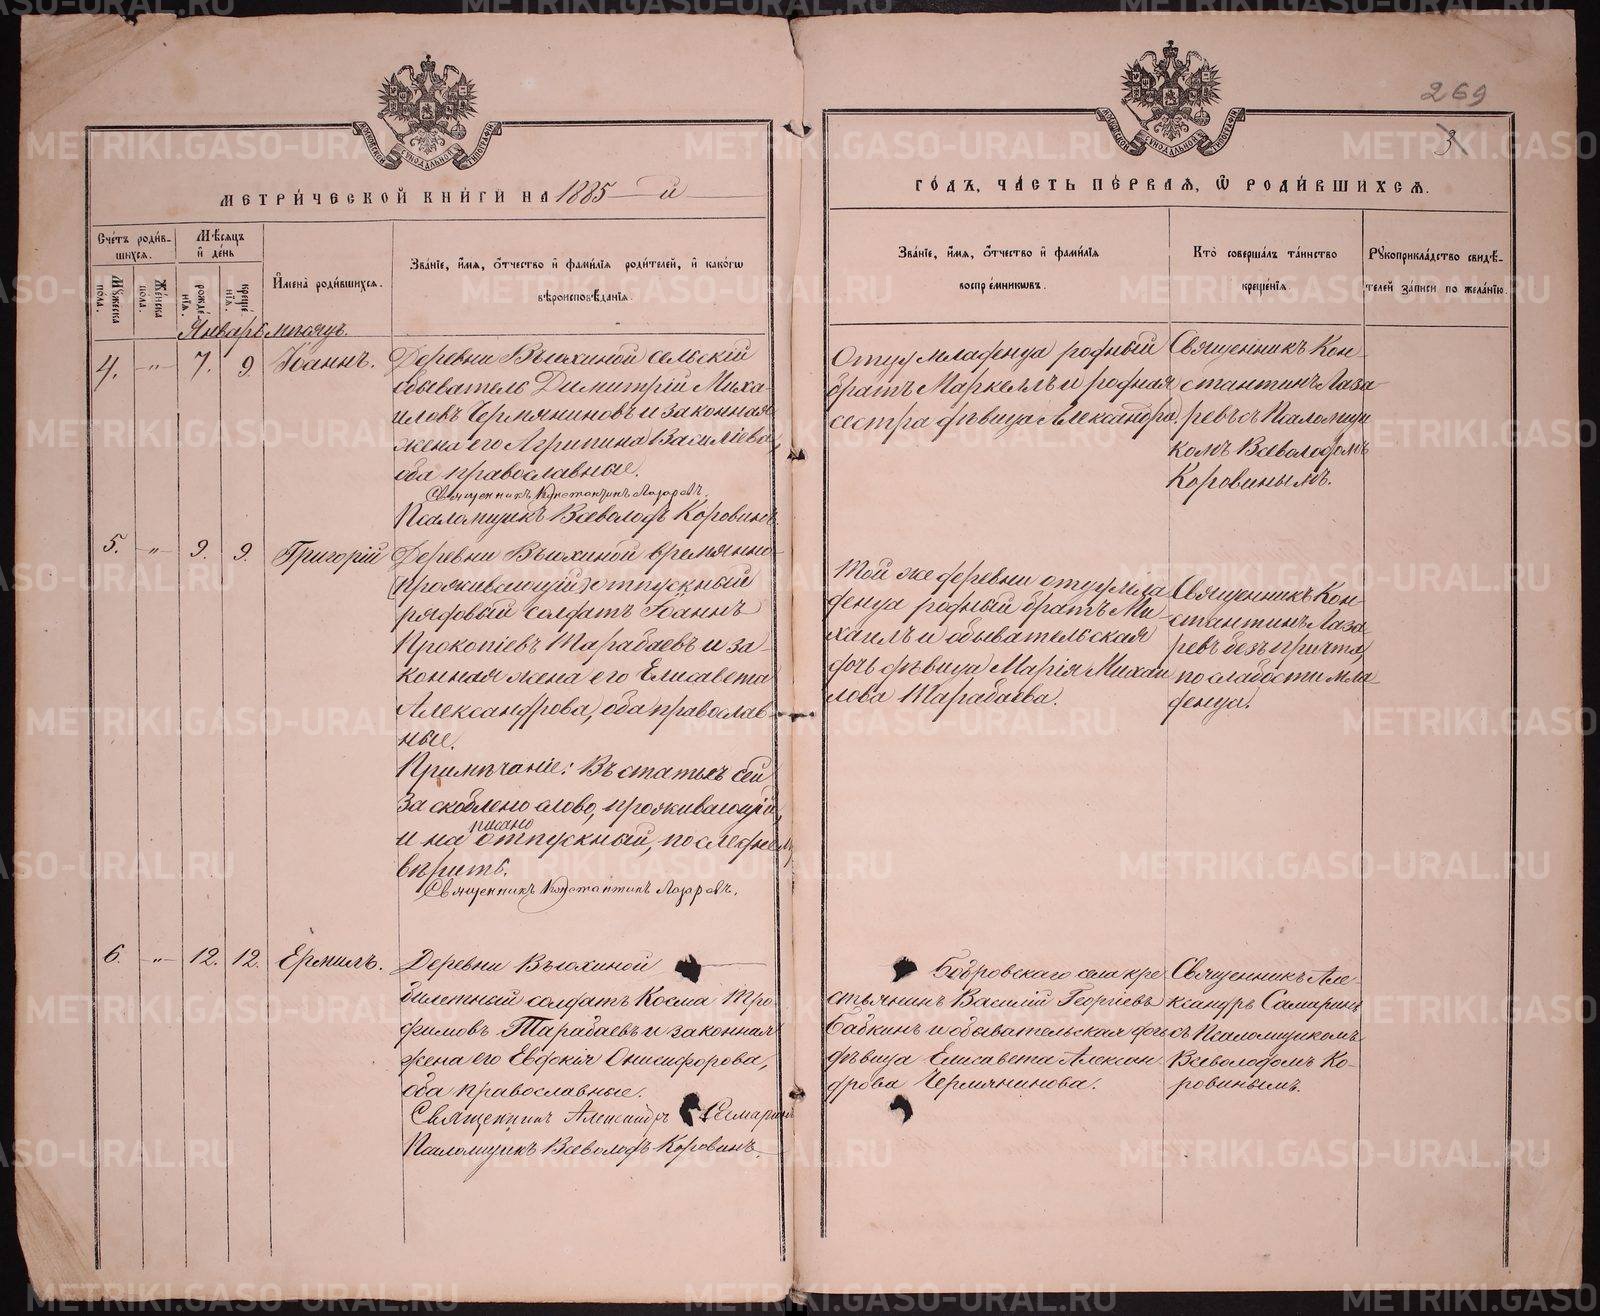 269
3
МЕТРИ́ЧЕСКОЙ КНИ́ГИ НА 1885-й
ГО́ДЪ, ЧА́СТЬ ПЕ́РВАЯ, Ѡ РОДИ́ВШИХСЯ.
Сче́тъ роди́в-
шихся.
Му́жеска по́ла.
Же́нска по́ла.
Мѣ́сяцъ
и де́нь
рожде́-
нїя.
креще́-
нїя.
И҆мена̀ роди́вшихся.
Зва́нїе, и҆́мя, ѻ҆́тчество и҆ фами́лїя роди́телей, и҆ како́гѡ
вѣроисповѣ́данїя.
Зва́нїе, и҆́мя, ѻ҆́тчество и҆ фами́лїя
воспрїе́мникѡвъ.
Кто̀ соверша́лъ та́инство
креще́нїя.
Рꙋкоприкла́дство свидѣ́-
телей за́писи по жела́нїю.
Январь мѣсяцъ.
4. -"- 7. 9. Іоаннъ.
Деревни Вьюхиной сельскій
обыватель Димитрій Миха-
иловъ Чермяниновъ и законная
жена его Агрипина Василіева,
оба православные.
Священникъ Константинъ Лазаревъ.
Псаломщикъ Всеволодъ Коровинъ.
Отцу младенца родный
братъ Маркеллъ и родная
сестра дѣвица Александра.
Священникъ Кон-
стантинъ Лаза-
ревъ съ Псаломщи-
комъ Всеволодомъ
Коровинымъ.
5. -"- 9. 9. Григорій
Деревни Вьюхиной времянно-
(проживающій) отпускный
рядовый солдатъ Іоаннъ
Прокопіевъ Тарабаевъ и за-
конная жена его Елисавета
Александрова, оба православ-
ные.
Примѣчаніе: Въ статьѣ сей
заскоблено слово, проживающій,
и на писано отпускный, последнему
вѣрить.
Священникъ Константинъ Лазаревъ.
Той же деревни отцу мла-
денца родный братъ Ми-
хаилъ и обывательская
дочь дѣвица Марія Михаи-
лова Тарабаева.
Священникъ Кон-
стантинъ Лаза-
ревъ безъ причта,
по слабости мла-
денца.
6. -"- 12. 12. Ермилъ.
Деревни Вьюхиной
билетный солдатъ Косма Тро-
фимовъ Тарабаевъ и законная
жена его Евдокія Онисифорова,
оба православные.
Священникъ Александръ Самаринъ
Псаломщикъ Всеволодъ Коровинъ.
Бобровскаго села кре-
стьянинъ Василій Георгіевъ
Бабкинъ и обывательская дочь
дѣвица Елисавета Алексан-
дрова Чермянинова.
Священникъ Але-
ксандръ Самаринъ
съ Псаломщикомъ
Всеволодомъ Ко-
ровинымъ.
METRIKI.GASO-URAL.RU